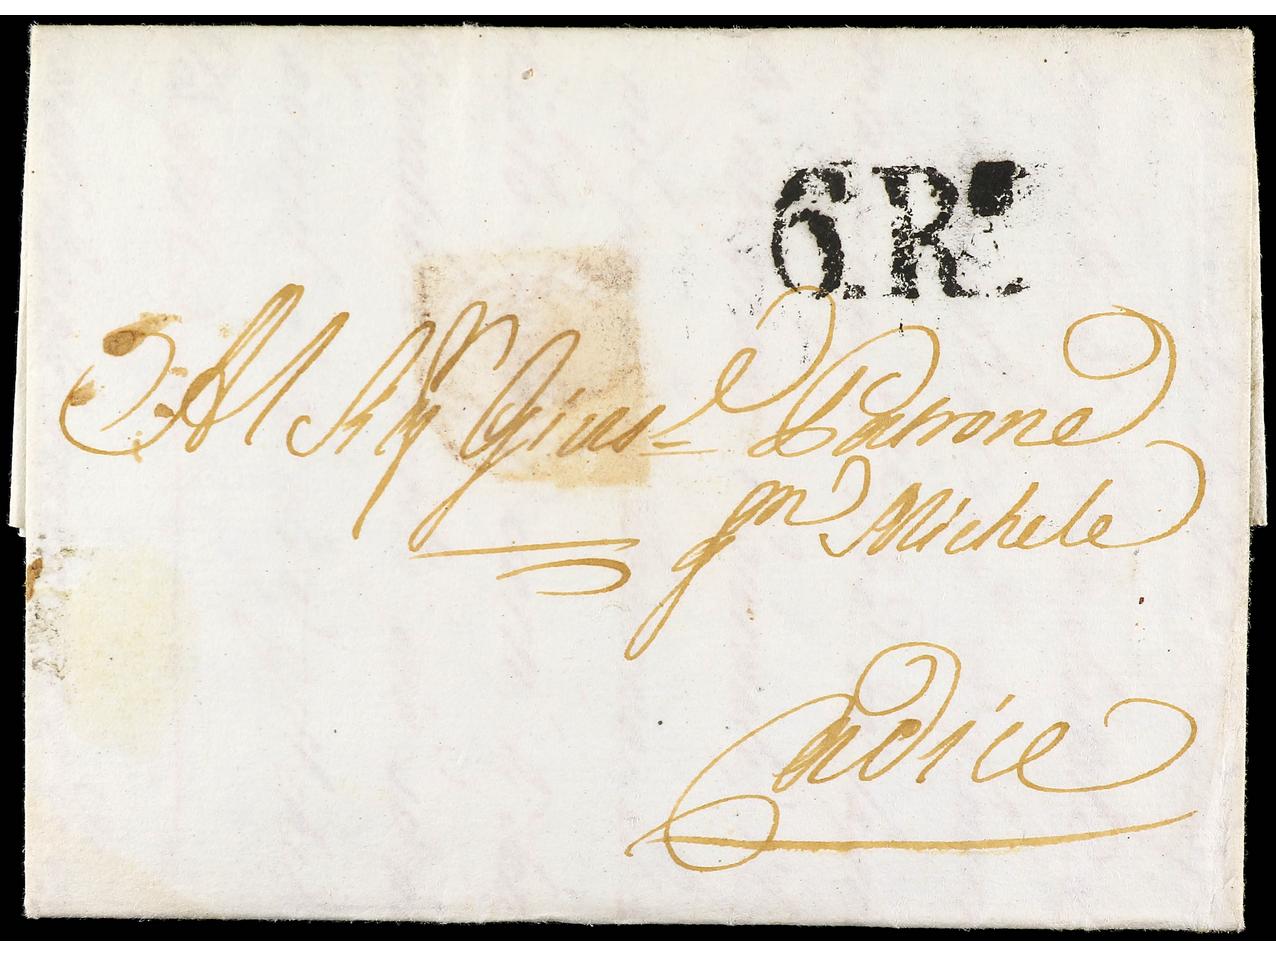 6.Rs
Al Sigr Giuse Patrone
qm Michele
Cadice